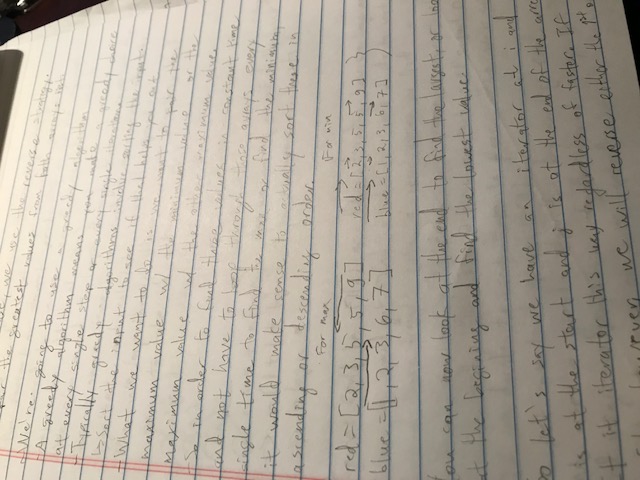 we use the reverse strategy.
the greatest values from both arrays
- We're going to use a greedy algorithm
A greedy algorithm means you make a greedy choice
at every single step or every single iteration
- Typically greedy algorithms involve sorting the input.
↳ Sort the input to see if that helps out
- What we want to do is we want to pair the
maximum value w/ the minimum value or the
maximum value w/ the other maximum value.
- So in order to find those values in constant time
and not have to loop through those arrays every
single time to find the max or find the minimum,
it would make sense to actually sort these in
ascending or descending order.
For max For min
red = [2, 3, 5, 5, 9] red = [2, 3, 5, 5, 9]
blue = [1, 2, 3, 6, 7] blue = [1, 2, 3, 6, 7]
You can now look at the end to find the largest, or
at the begining and find the lowest value.
So let's say we have an iterator at i and
is at the start and j is at the end of the
it iterator this way regardless of faster. If
however, we will reverse either the 1st